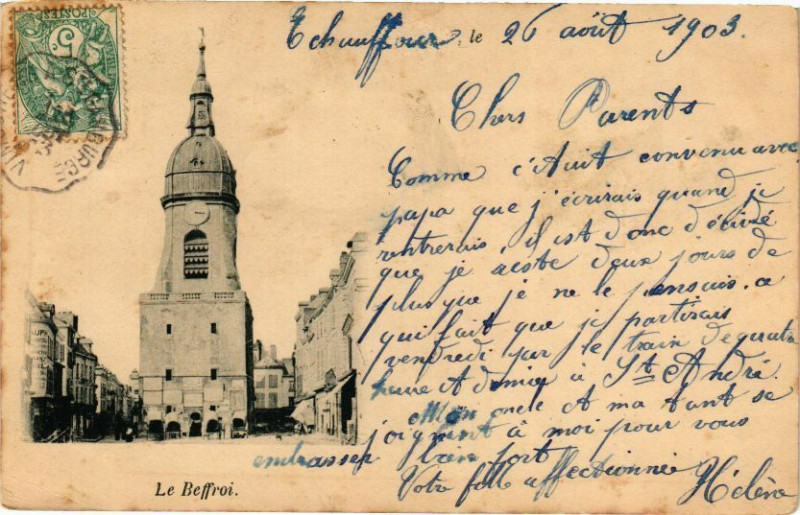 Echauffour, le 26 août 1903.
Chers Parents
Comme c'était convenu avec
papa que j'écrirais quand je
rentrerais, il est donc décidé
que je reste deux jours de
plus que je ne le pensais. ce
qui fait que je partirais
vendredi par le train de quatre
heure et demie à St André.
Mon oncle et ma tant se
joignent à moi pour vous
embrasser bien fort
Votre fille affectionnée
Hélène
Le Beffroi.
POSTES
5